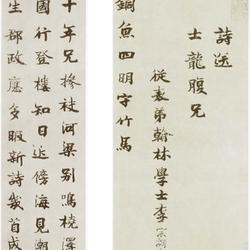 詩送
士龍腹兄
從表弟翰林學士李宗諤
銅魚四明守竹馬
十年兄摻袂河梁別鳴橈澤
國行登樓知日近傍海見潮
生郡政應多暇新詩幾首成